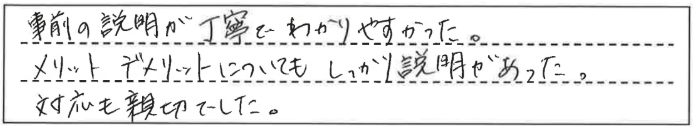 事前の説明が丁寧でわかりやすかった。
メリット デメリットについてもしっかり説明があった。
対応も親切でした。